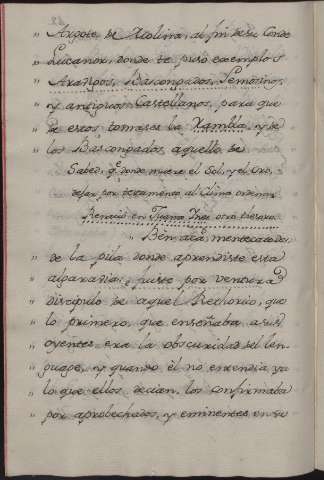 " Argote de Molina, al fin de su Conde
" Lucanor, donde te puso exemplos
" Arabigos, Bascongados, Lemosinos,
" y antiguos Castellanos, para que
" de esos tomases la Xambla, y de
" los Bascongados, aquello de
Sabed, qe. donde muere el Sol, y el Oro,
dejar por testamento al Clima ordena,
Renació en Tajma Ynes otro thesoro.
" Ben acá, mentecato de
" de la pila donde aprendiste esta
" algarabia; fuiste por ventura
" discipulo de aquel Rethorico, que
" lo primero, que enseñaba a sus
" oyentes era la obscuridad del len-
" guage, y quando él no entendia ya
" lo que ellos decian, los confirmaba
" por aprobechados, y eminentes en su